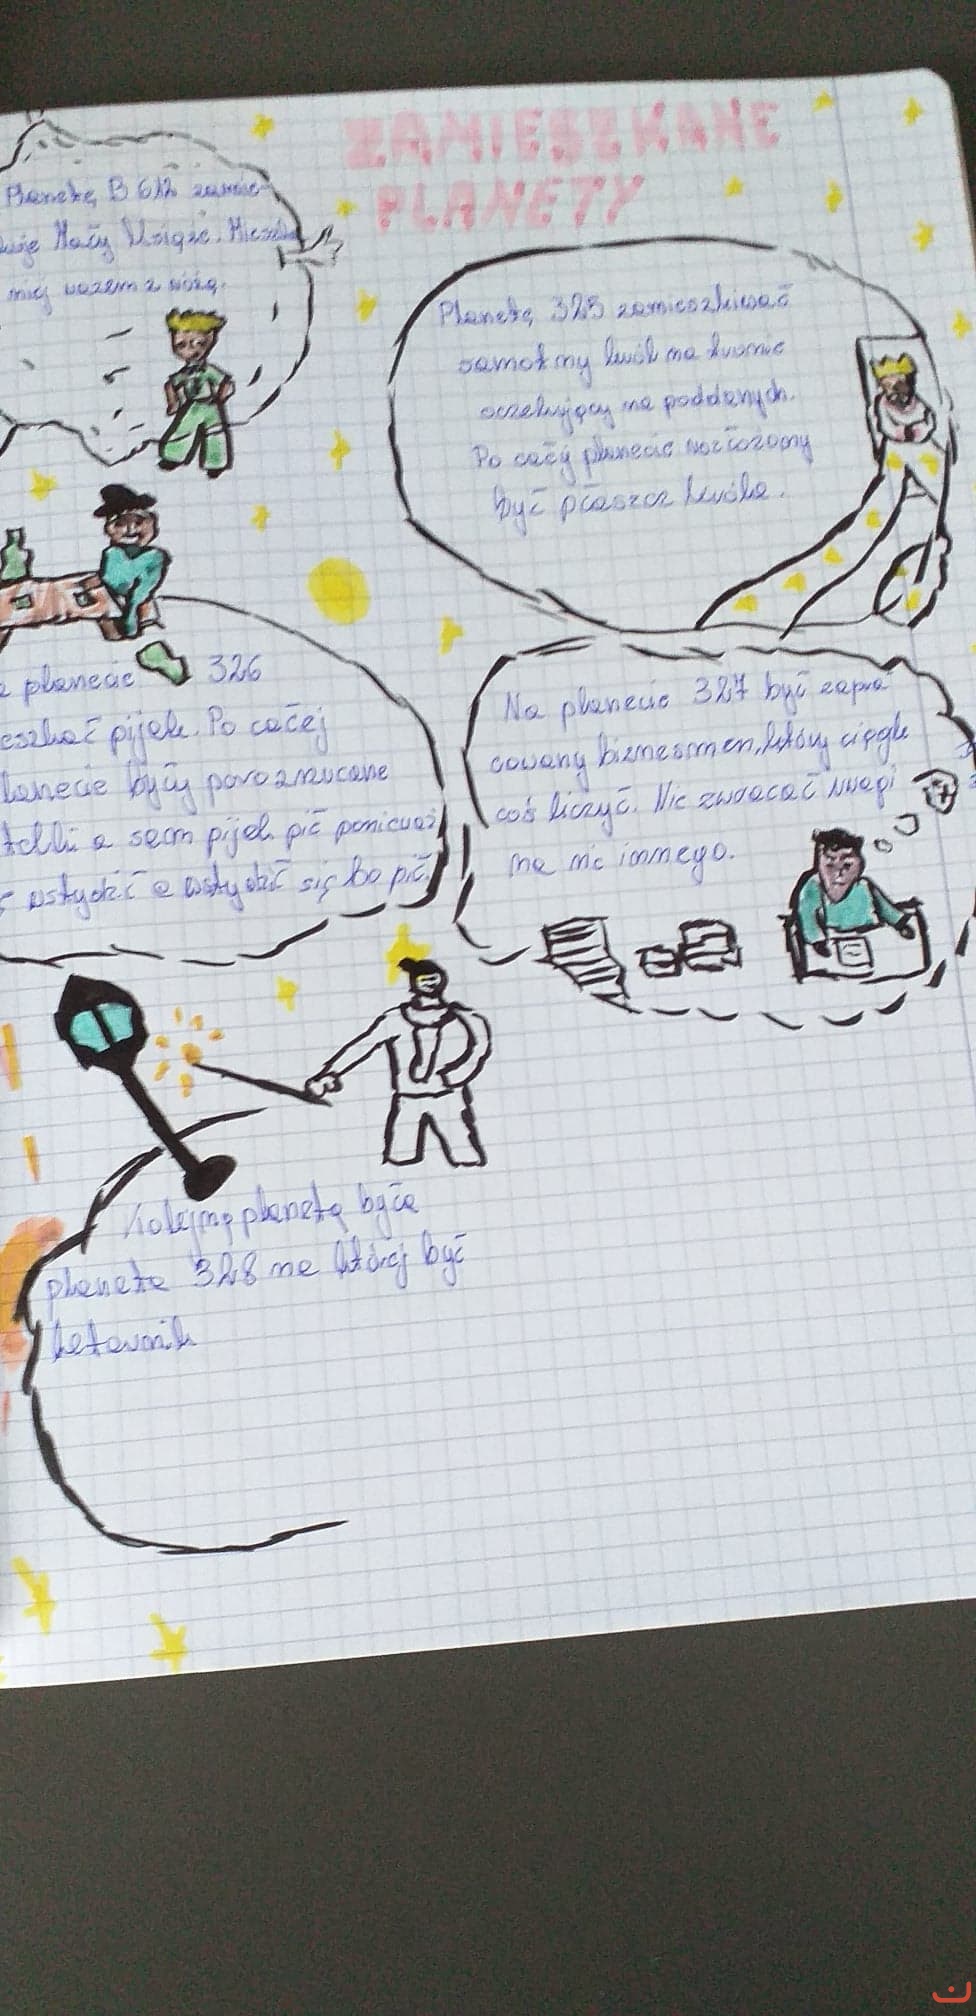 ZAMIESZKANE
PLANETY
Planetę B 612 zamie-
uje Mały Książę. Mieszka
niej razem z różą.
Planetę 325 zamieszkiwał
samotny król na tronie
oczekujący na poddanych.
Po cały planecie rozłożony
był płaszcz króla.
planecie 326
eszkał pijak. Po całej
lanecie były porozrzucane
telki a sam pijak pił ponieważ
wstydził a wstydził się bo pił.
Na planecie 327 był zapra
cowany biznesmen, który ciągle
coś liczył. Nie zwracał uwagi
na nic innego.
Kolejną planetą była
planeta 328 na której był
latarnik